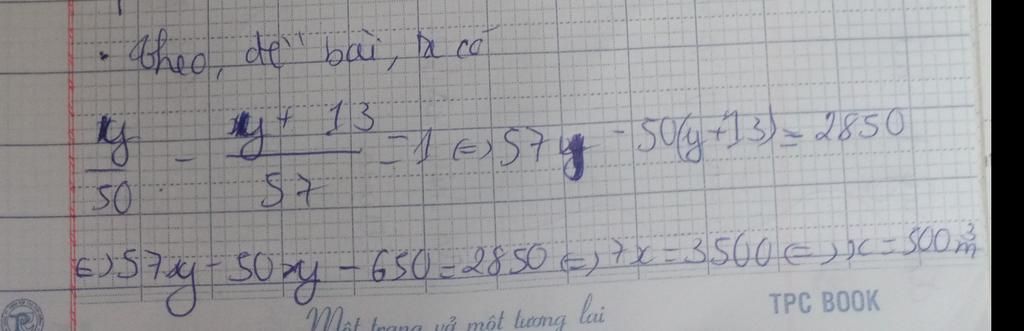 . Theo, đề bài, ta có
y/50 - y + 13/57 = 1 <=> 57y - 50(y+13) = 2850
<=> 57xy - 50xy - 650 = 2850 <=> 7x = 3500 <=> x = 500 m³
Một trang vở một tương lai
TPC BOOK